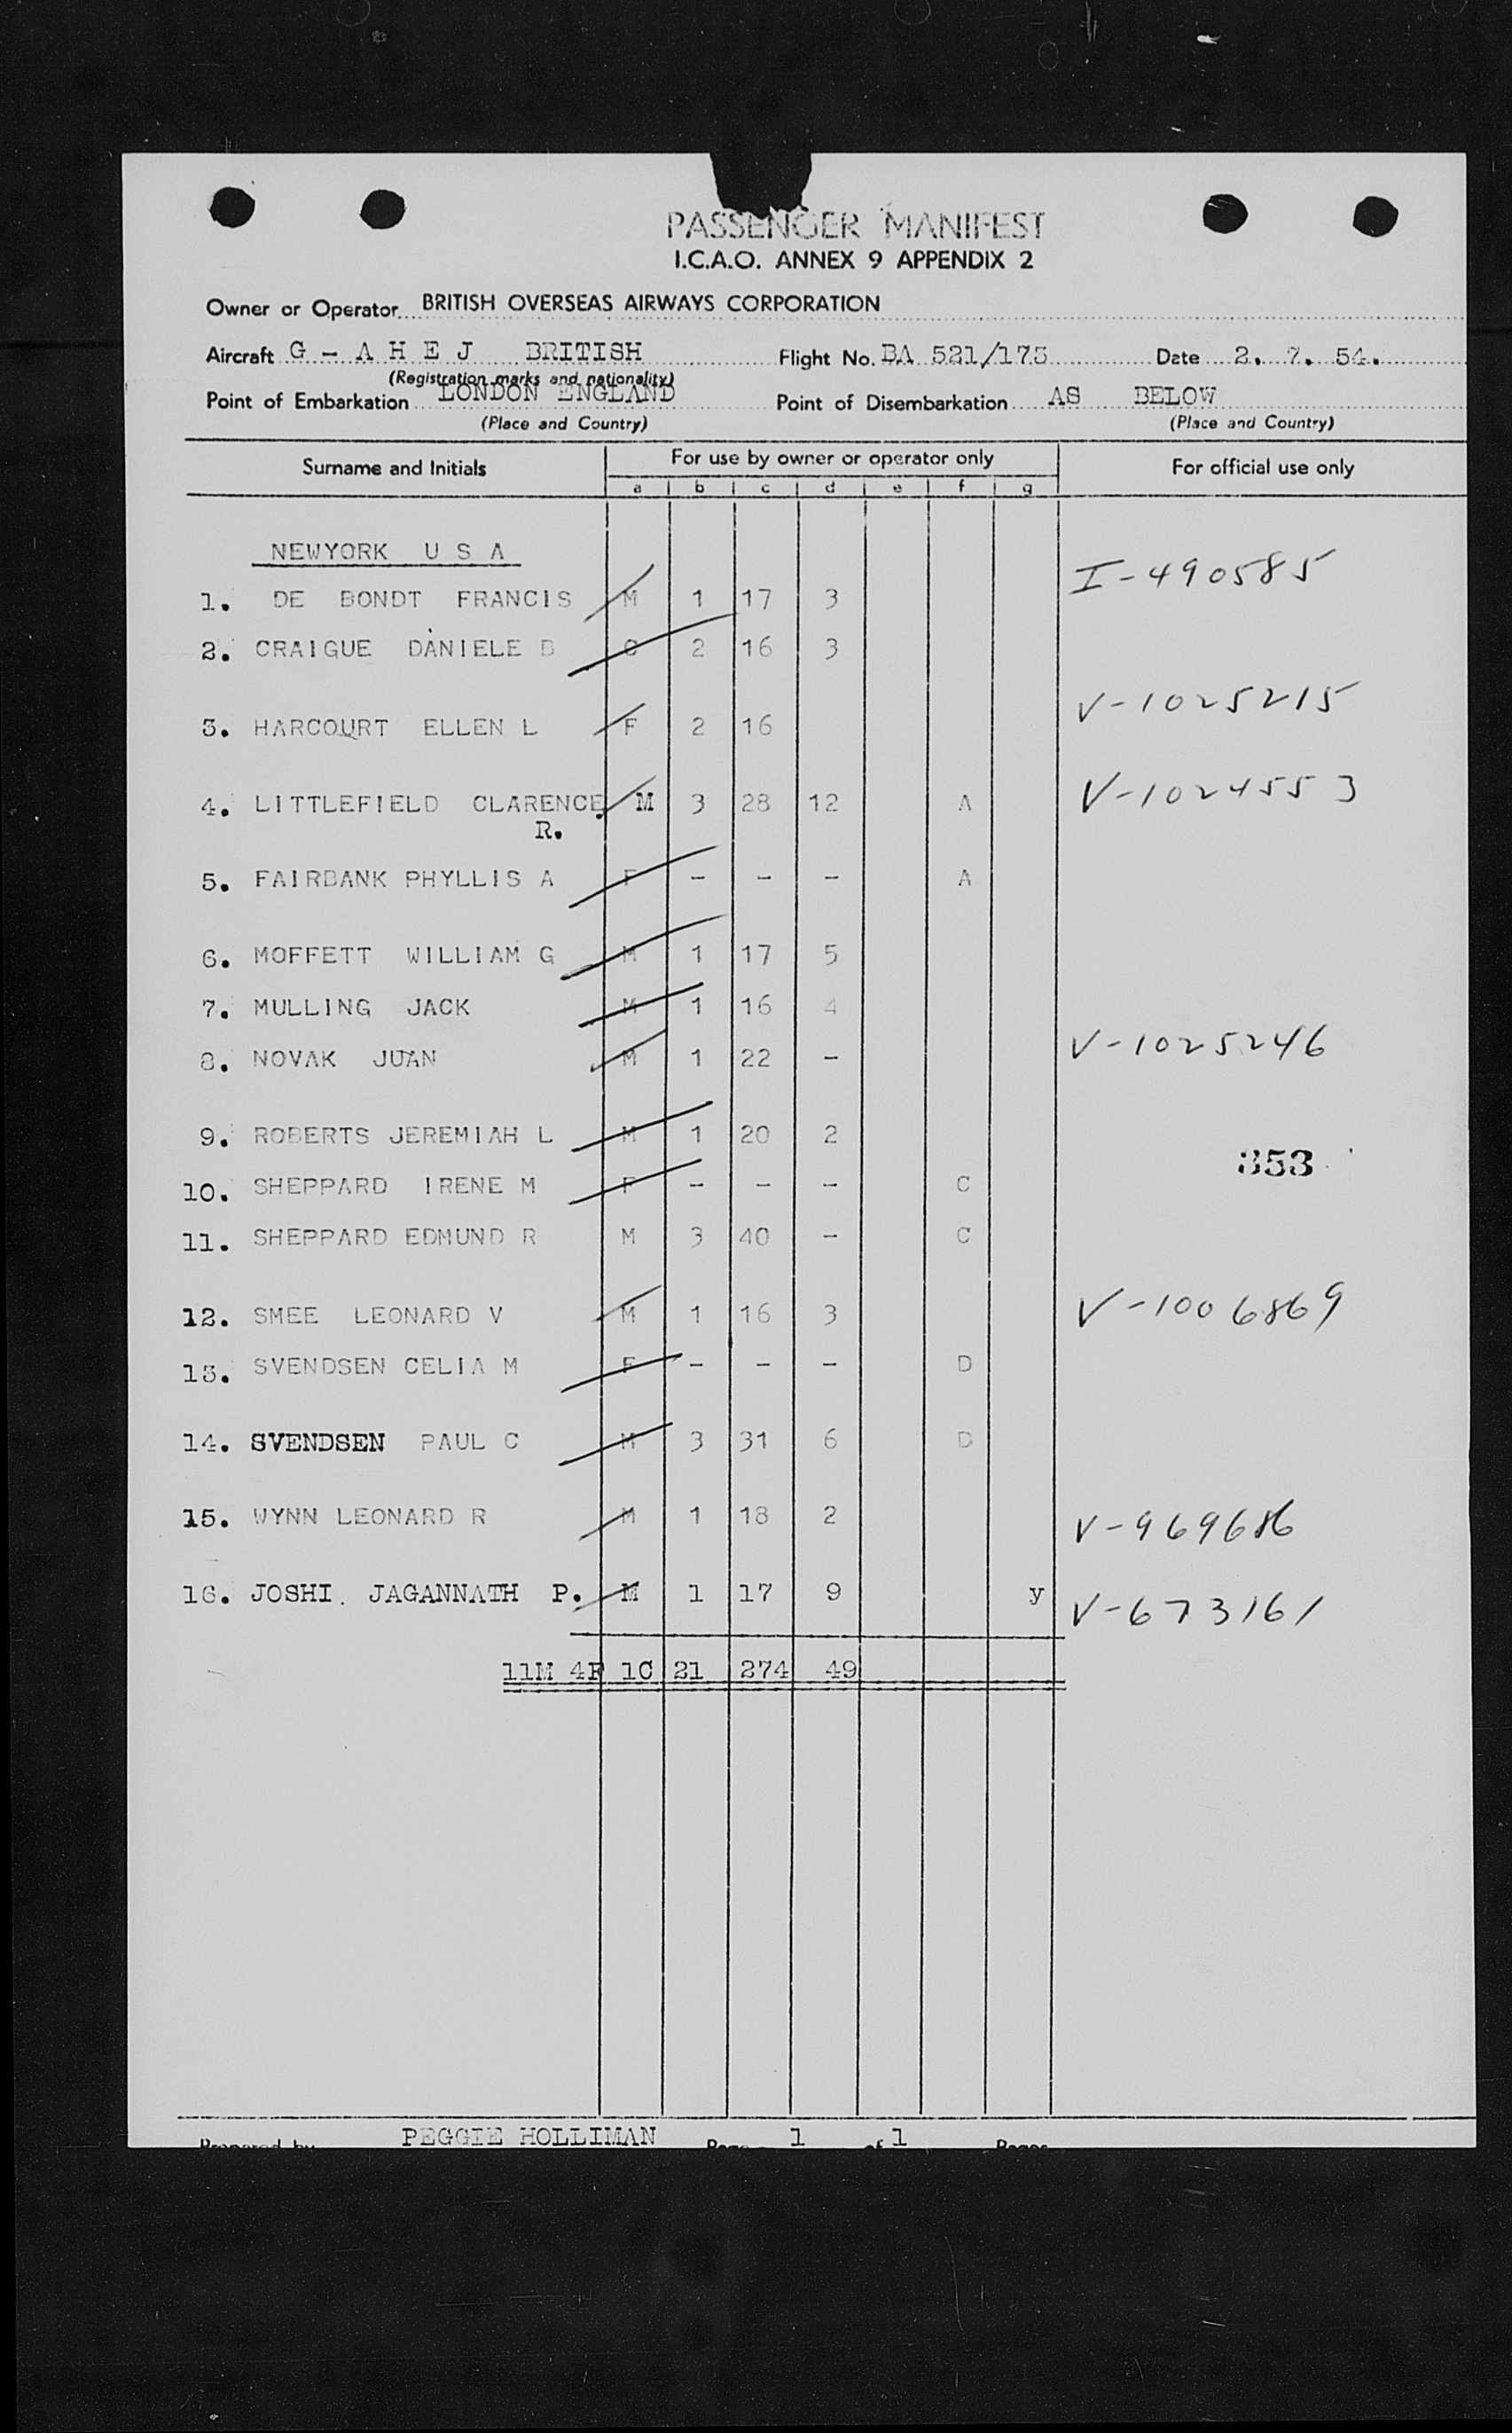 PASSENGER MANIFEST
I.C.A.O. ANNEX 9 APPENDIX 2
Owner or Operator BRITISH OVERSEAS AIRWAYS CORPORATION
Aircraft G - A H E J BRITISH Flight No. BA 521/173 Date 2. 7. 54.
(Registration marks and nationality)
Point of Embarkation LONDON ENGLAND Point of Disembarkation AS BELOW
(Place and Country) (Place and Country)
Surname and Initials For use by owner or operator only For official use only
a b c d e f g
NEWYORK U S A
I-490585
1. DE BONDT FRANCIS M 1 17 3
2. CRAIGUE DANIELE B C 2 16 3
V-1025215
3. HARCOURT ELLEN L F 2 16
4. LITTLEFIELD CLARENCE M 3 28 12 A V-1024553
R.
5. FAIRBANK PHYLLIS A F - - - A
6. MOFFETT WILLIAM G M 1 17 5
7. MULLING JACK M 1 16 4
8. NOVAK JUAN M 1 22 - V-1025246
9. ROBERTS JEREMIAH L M 1 20 2
353
10. SHEPPARD IRENE M F - - - C
11. SHEPPARD EDMUND R M 3 40 - C
12. SMEE LEONARD V M 1 16 3 V-1006869
13. SVENDSEN CELIA M F - - - D
14. SVENDSEN PAUL C M 3 31 6 D
15. WYNN LEONARD R M 1 18 2 V-969686
16. JOSHI. JAGANNATH P. M 1 17 9 y V-673161
11M 4F 1C 21 274 49
Prepared by PEGGIE HOLLIMAN Page 1 of 1 Pages